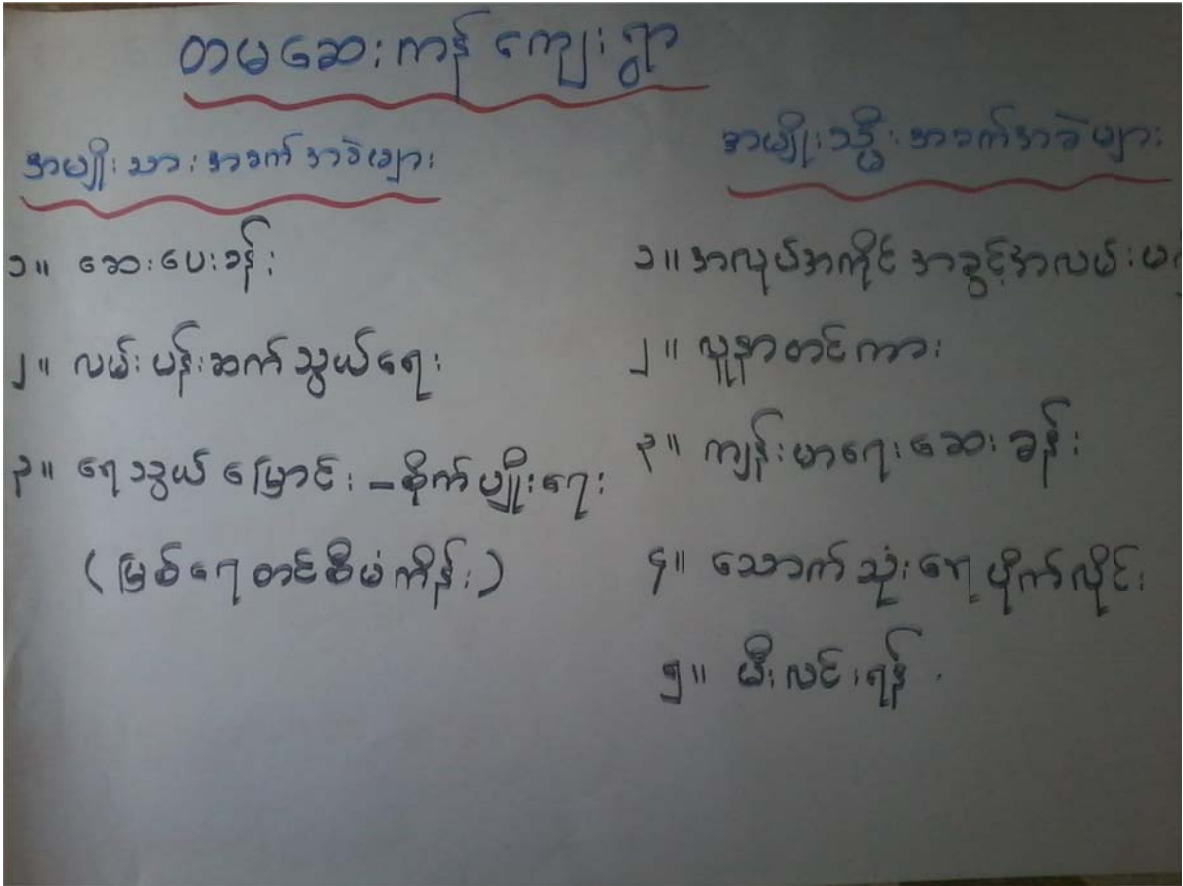 တမဆေးကန် ကျေးရွာ
အမျိုးသားအခက်အခဲများ
၁။ ဆေးပေးခန်း
၂။ လမ်းပန်းဆက်သွယ်ရေး
၃။ ရေသွယ်မြောင်း - စိုက်ပျိုးရေး
(မြစ်ရေတင်စီမံကိန်း)
အမျိုးသမီးအခက်အခဲများ
၁။ အလုပ်အကိုင် အခွင့်အလမ်း
၂။ လူနာတင်ကား
၃။ ကျန်းမာရေးဆေးခန်း
၄။ သောက်သုံးရေပိုက်လိုင်း
၅။ မီးလင်းရန်